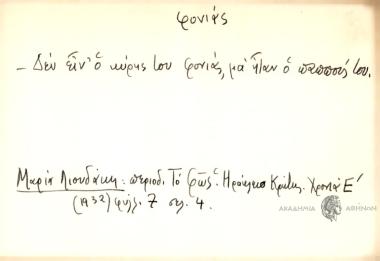 φονιάς
– Δέν εἶν' ὁ κύρης του φονιάς, μά ἦταν ὁ παπποῦς του.
Μαρία Λιουδάκη: περιοδ. Τό Φῶς. Ηράκλειο Κρήτης. Χρονιά Ε'
(1932) φύλλ. 7 σελ. 4.
ΑΚΑΔΗΜΙΑ ΑΘΗΝΩΝ